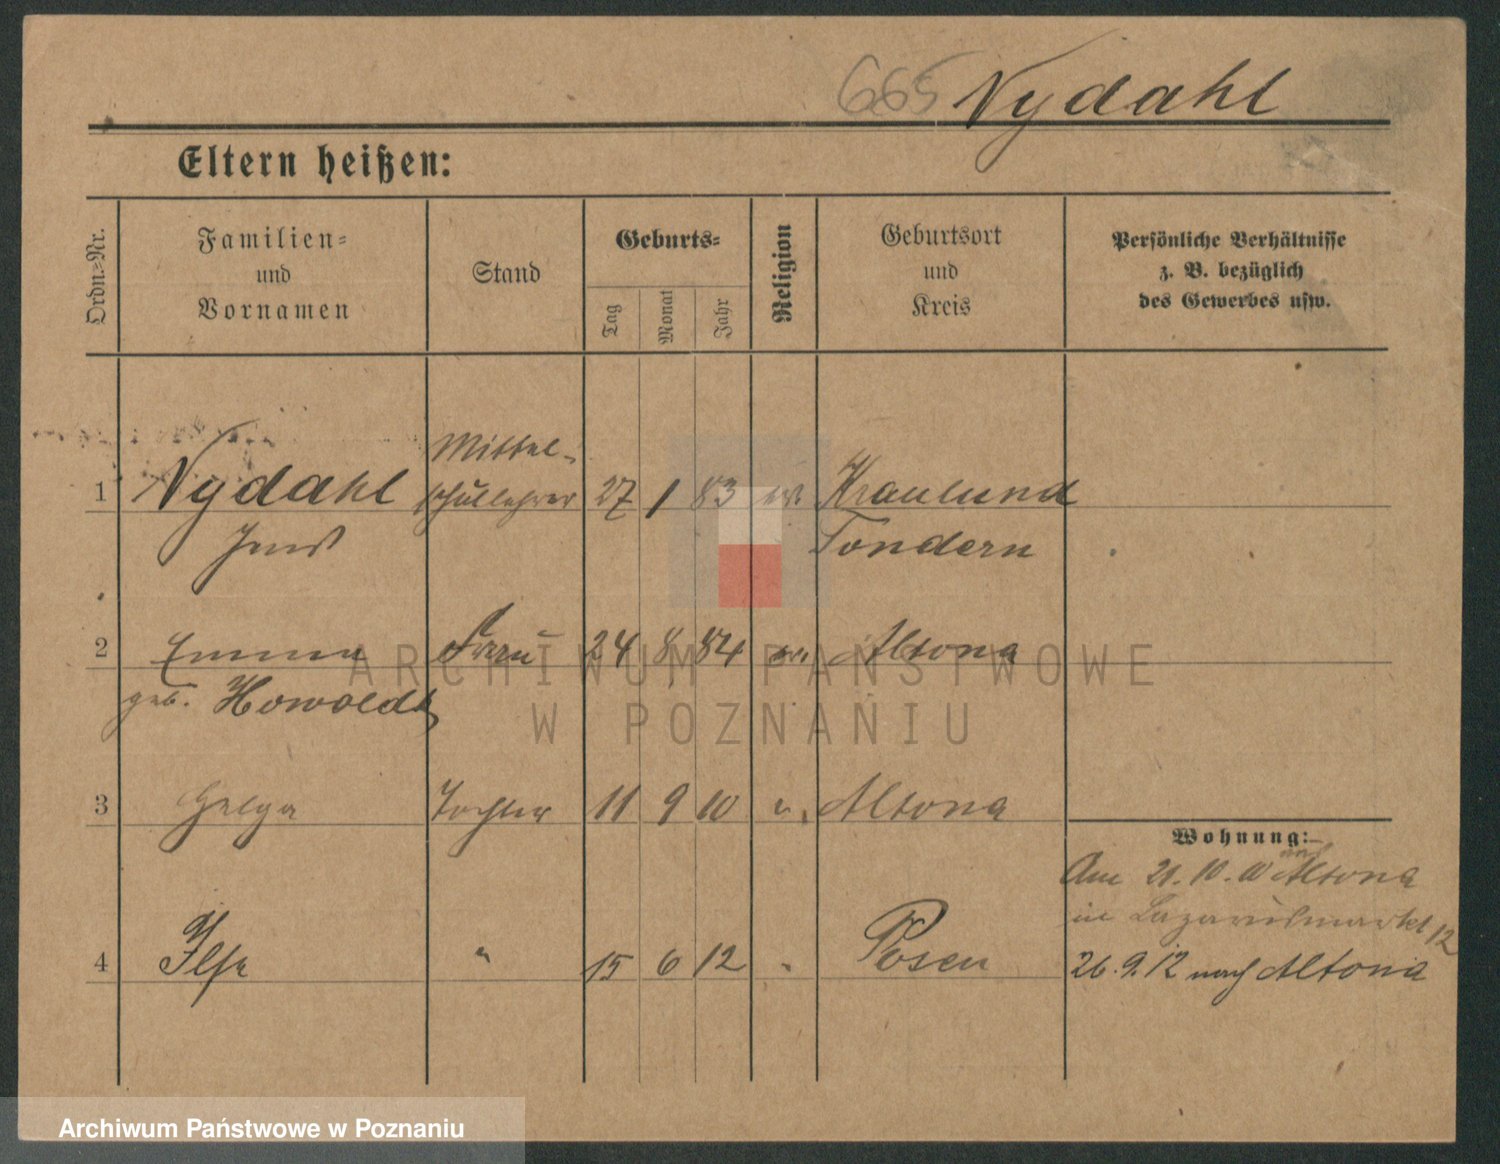 665 Nydahl
Eltern heißen:
Ordn.=Nr.
Familien=
und
Vornamen
Stand
Geburts=
Tag
Monat
Jahr
Religion
Geburtsort
und
Kreis
Persönliche Verhältnisse
z. B. bezüglich
des Gewerbes usw.
Mittel-
1 Nydahl schullehrer 27 1 83 ev. Kraulund
Jens Tondern
2 Emma Frau 24 8 84 ev. Altona
geb. Howoldt
3 Helga Tochter 11 9 10 e. Altona
Wohnung:
Am 21.10.10 Altona
in Lazarusmarkt 12
4 Ilse " 15 6 12 " Posen
26.9.12 nach Altona
ARCHIWUM PAŃSTWOWE
W POZNANIU
Archiwum Państwowe w Poznaniu